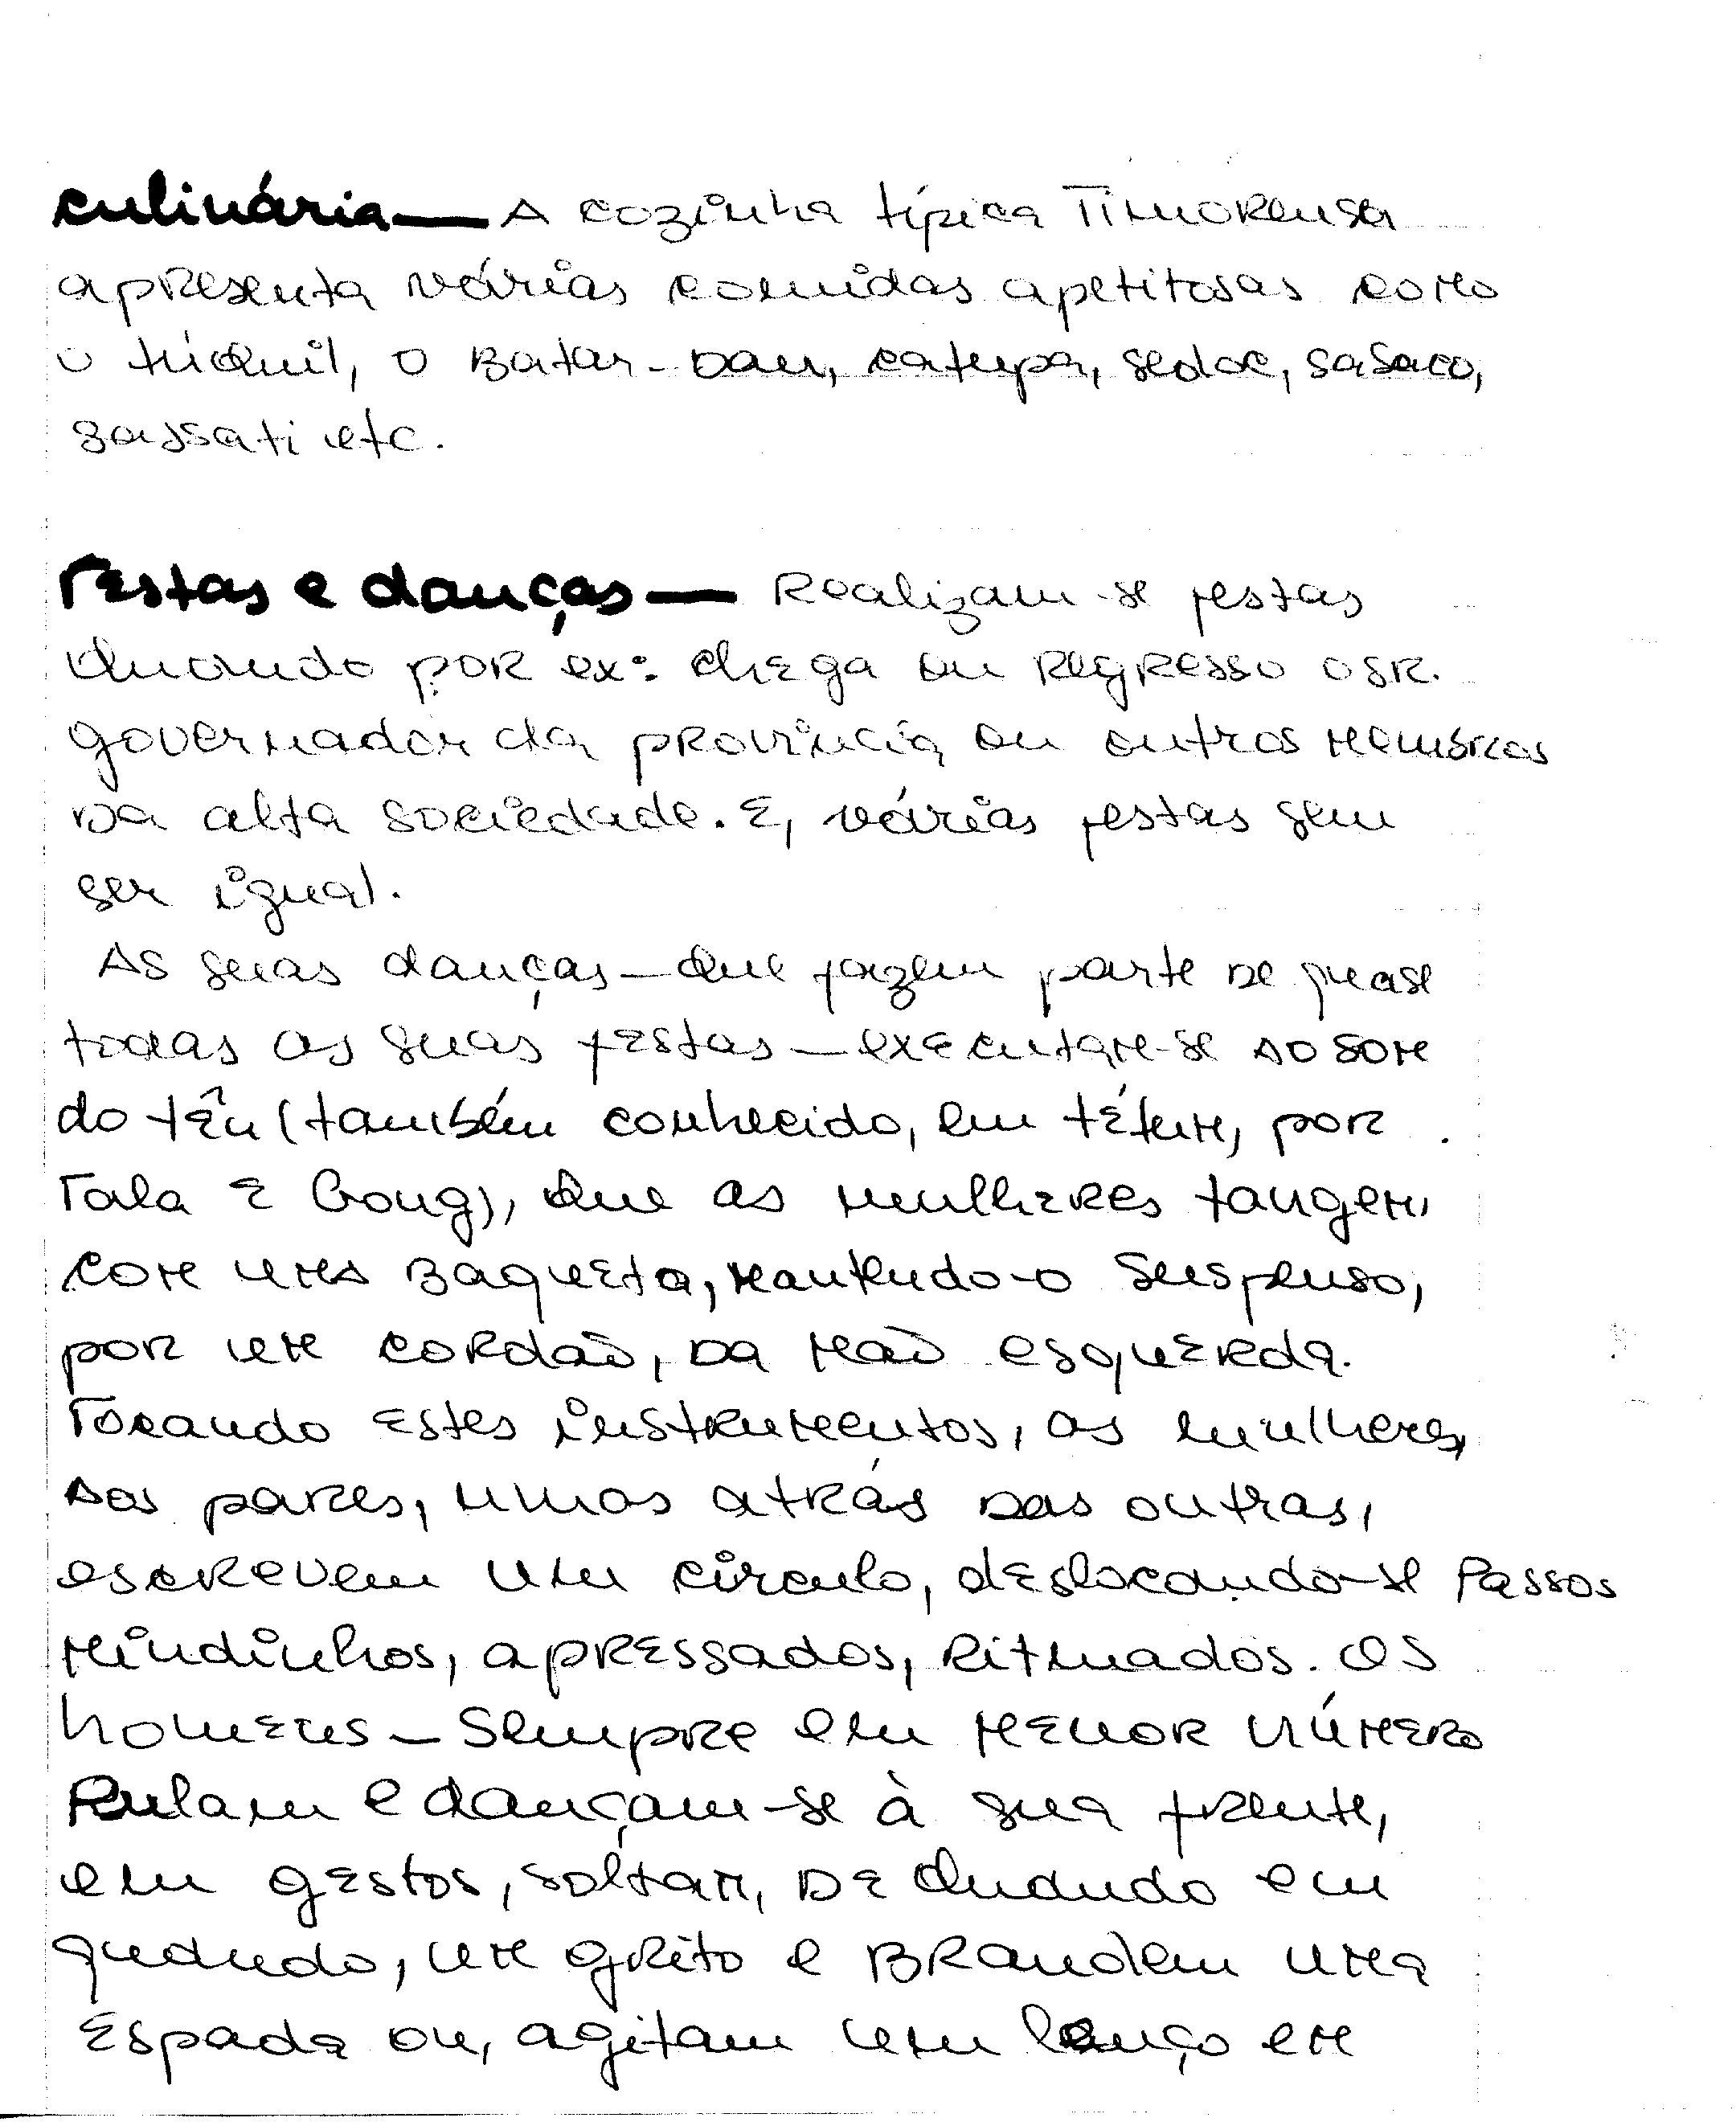 culinária — A cozinha típica Timorensa
apresenta várias comidas apetitosas como
o túquil, o Batar-Dau, catupa, sedoc, sasaco,
sassati etc.
Festas e danças — Realizam-se festas
quando por ex: chega ou regresso o sr.
governador da província ou outros membros
da alta sociedade. E, várias festas sem
ser igual.
As suas danças — que fazem parte de quase
todas as suas festas — executam-se ao som
do têu (também conhecido, em tétum, por
Tala e Gong), que as mulheres tangem,
com uma baqueta, mantendo-o suspenso,
por um cordão, da mão esquerda.
Tocando estes instrumentos, as mulheres,
aos pares, umas atrás das outras,
escrevem um círculo, deslocando-se Passos
mindinhos, apressados, ritmados. Os
homens — sempre em menor número
Pulam e dançam-se à sua frente,
em gestos, soltam, de quando em
quando, um grito e brandem uma
Espada ou, agitam um lenço em